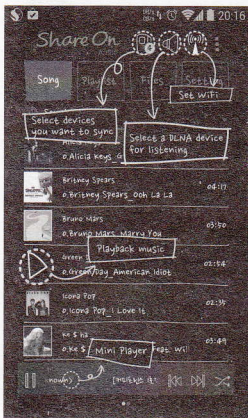 20:16
Share On
Song Playlist Files Setting
Set WiFi
Select devices
you want to sync
Select a DLNA device
for listening
o,Alicia Keys_G
Britney Spears
o,Britney Spears_Ooh La La 04:17
Bruno Mars 03:50
o,Bruno Mars_Marry You
Playback music
Green
o,Green Day_American Idiot 02:54
Icona Pop
o,Icona Pop_I Love It 02:35
Ke $ ha 03:49
o,Ke $ Feat. Wil
Mini Player